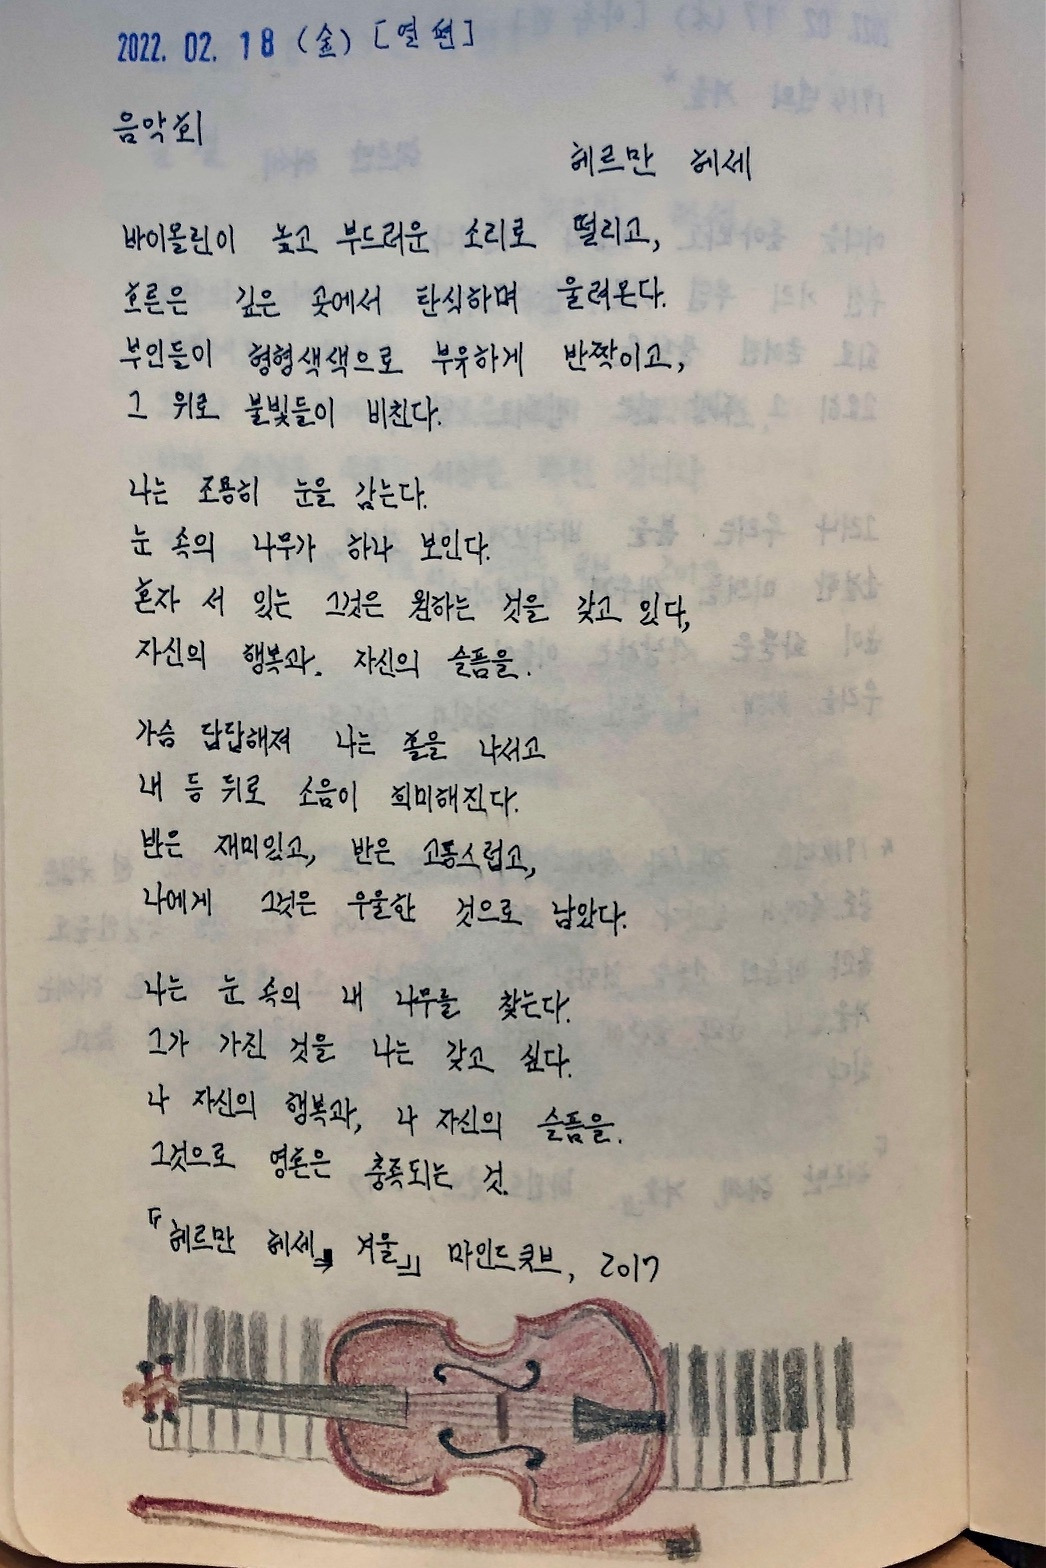 2022. 02. 18 (金) [열 번]
음악회
헤르만 헤세
바이올린이 높고 부드러운 소리로 떨리고,
호른은 깊은 곳에서 탄식하며 울려온다.
부인들이 형형색색으로 부유하게 반짝이고,
그 위로 불빛들이 비친다.
나는 조용히 눈을 감는다.
눈 속의 나무가 하나 보인다.
혼자 서 있는 그것은 원하는 것을 갖고 있다,
자신의 행복과. 자신의 슬픔을.
가슴 답답해져 나는 홀을 나서고
내 등 뒤로 소음이 희미해진다.
반은 재미있고, 반은 고통스럽고,
나에게 그것은 우울한 것으로 남았다.
나는 눈 속의 내 나무를 찾는다.
그가 가진 것을 나는 갖고 싶다.
나 자신의 행복과, 나 자신의 슬픔을.
그것으로 영혼은 충족되는 것.
『헤르만 헤세, 겨울』 마인드큐브, 2017